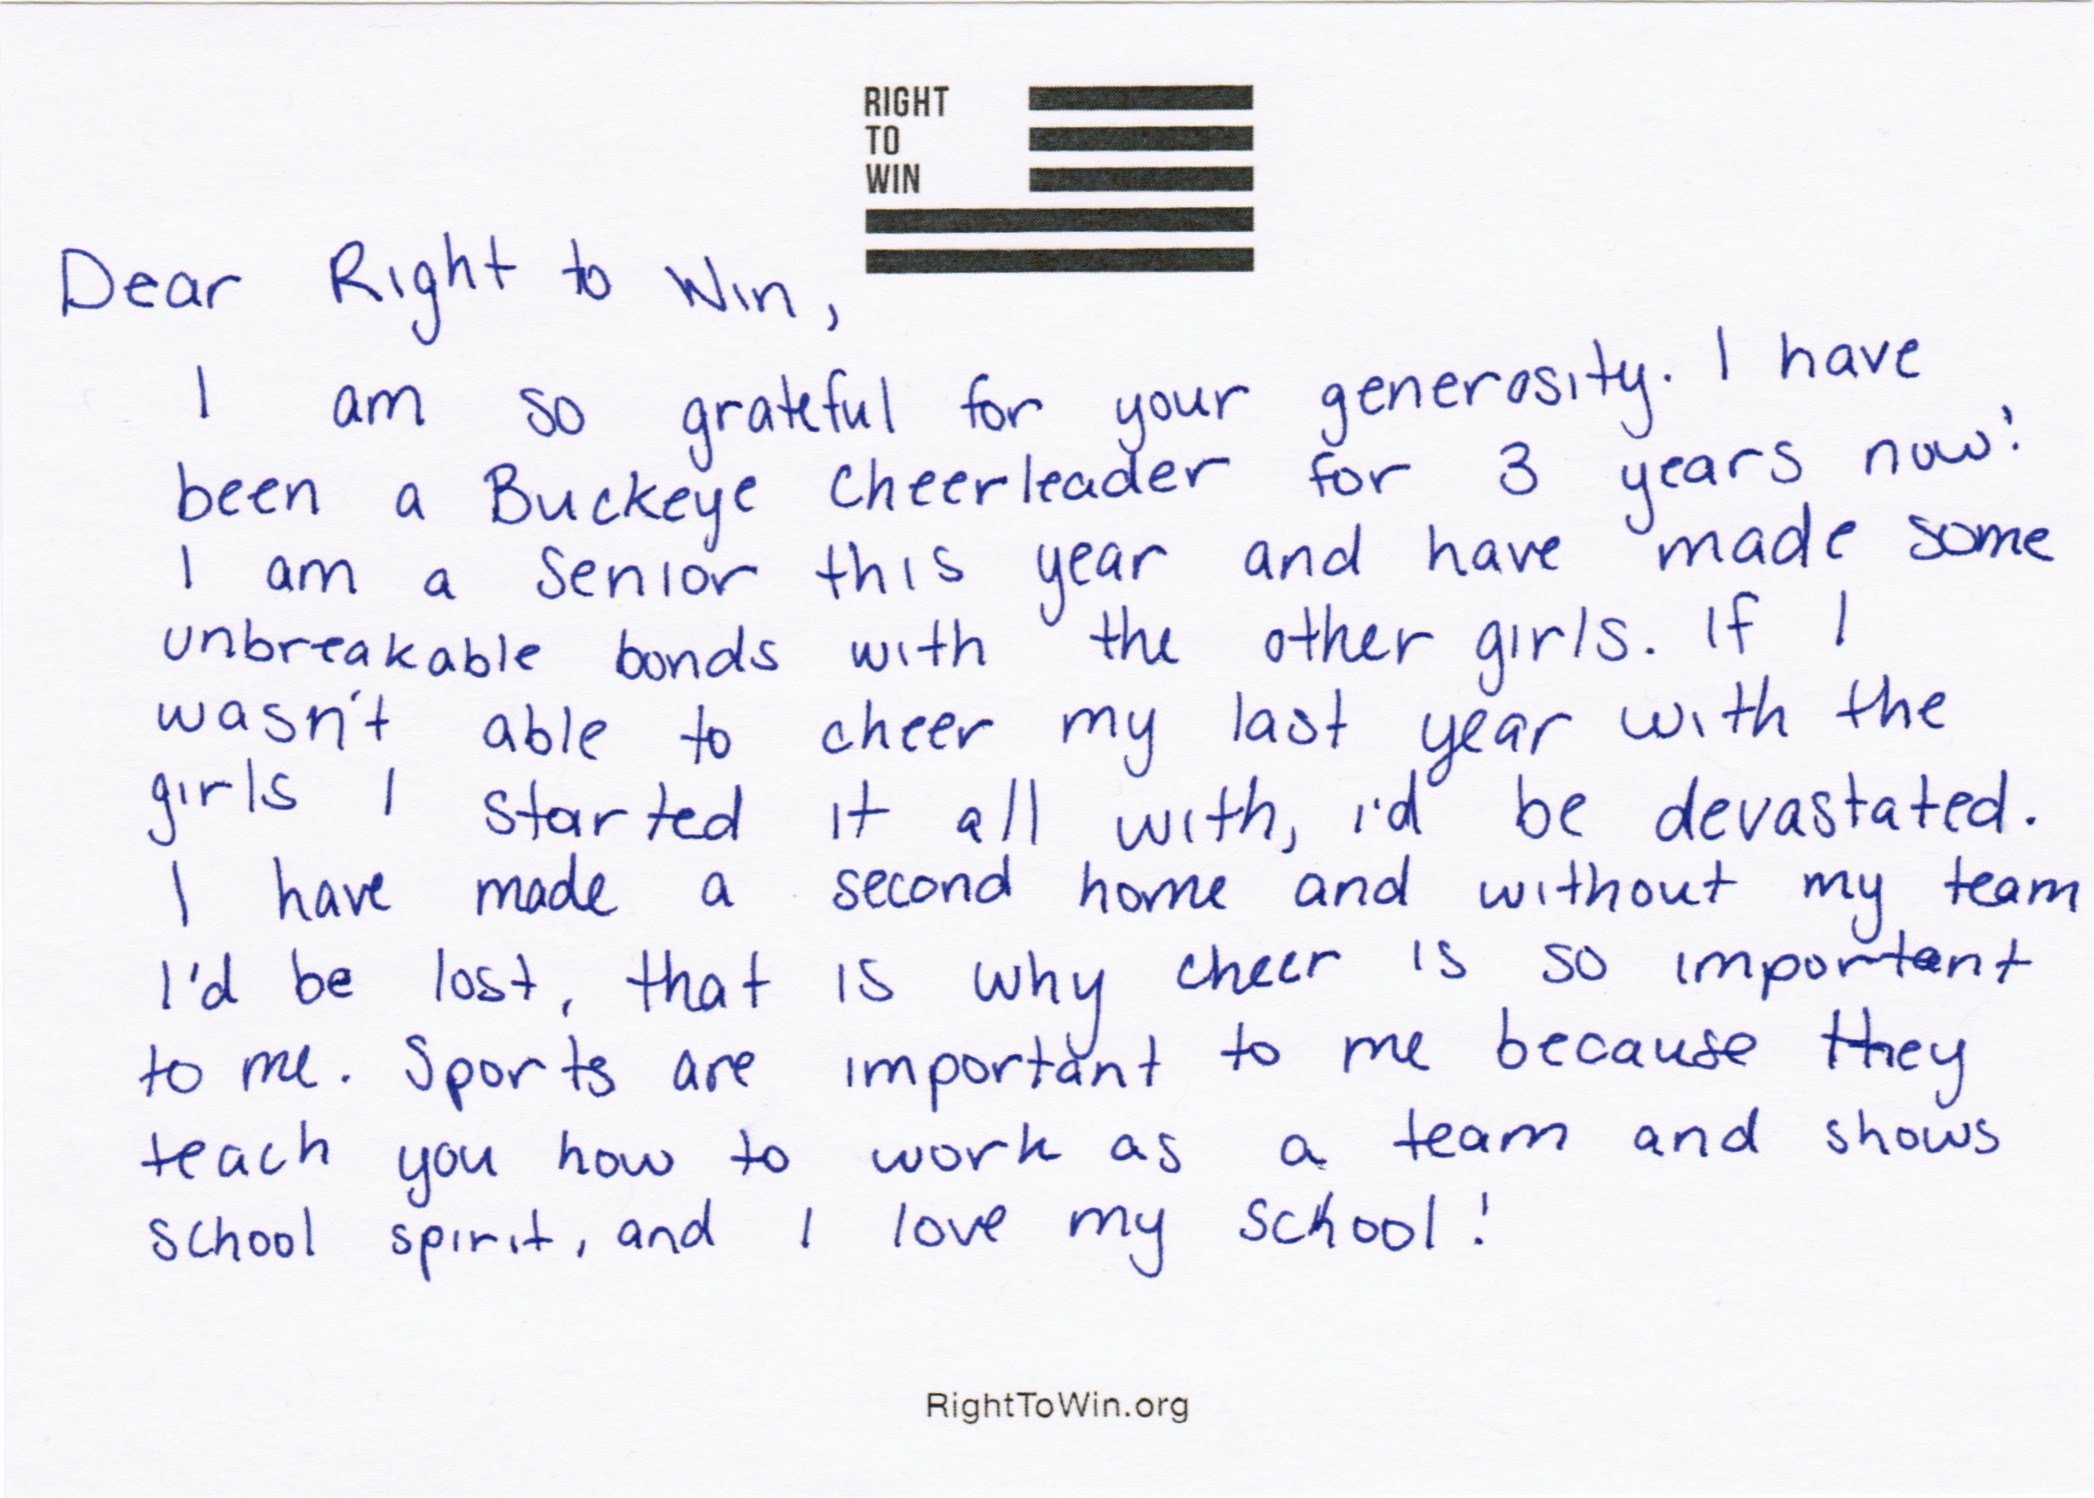 RIGHT
TO
WIN
Dear Right to Win,
I am so grateful for your generosity. I have
been a Buckeye Cheerleader for 3 years now!
I am a Senior this year and have made some
unbreakable bonds with the other girls. If I
wasn't able to cheer my last year with the
girls I started it all with, i'd be devastated.
I have made a second home and without my team
I'd be lost, that is why cheer is so important
to me. Sports are important to me because they
teach you how to work as a team and shows
school spirit, and I love my school!
RightToWin.org